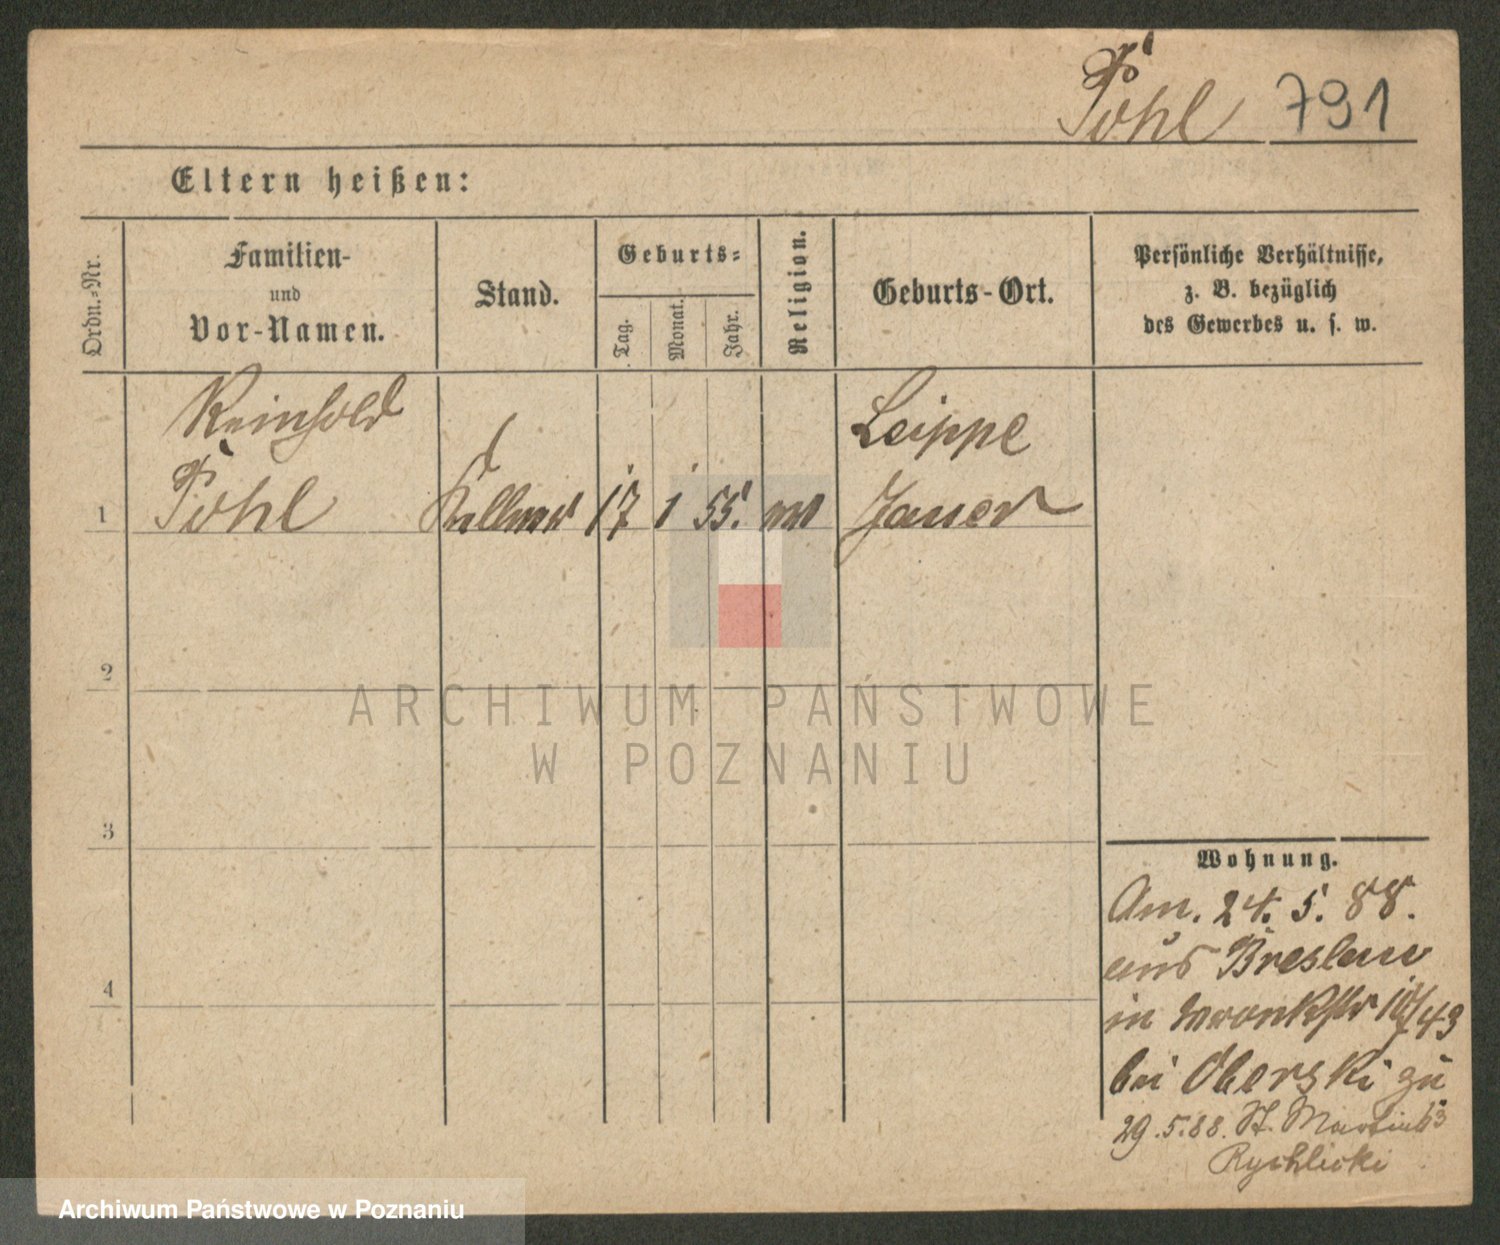 Pohl 791
Eltern heißen:
Ordn.-Nr.
Familien-
und
Vor-Namen.
Stand.
Geburts-
Tag.
Monat.
Jahr.
Religion.
Geburts-Ort.
Persönliche Verhältnisse,
z. B. bezüglich
des Gewerbes u. s. w.
Reinhold
Pohl
1
Kellner
17
1
55.
Leippe
Jauer
2
3
4
Wohnung.
Am. 24. 5. 88.
aus Breslau
in Wronkstr 10/43
bei Oberski zu
29.5.88. St. Martin 63
Rychlicki
ARCHIWUM PAŃSTWOWE
W POZNANIU
Archiwum Państwowe w Poznaniu